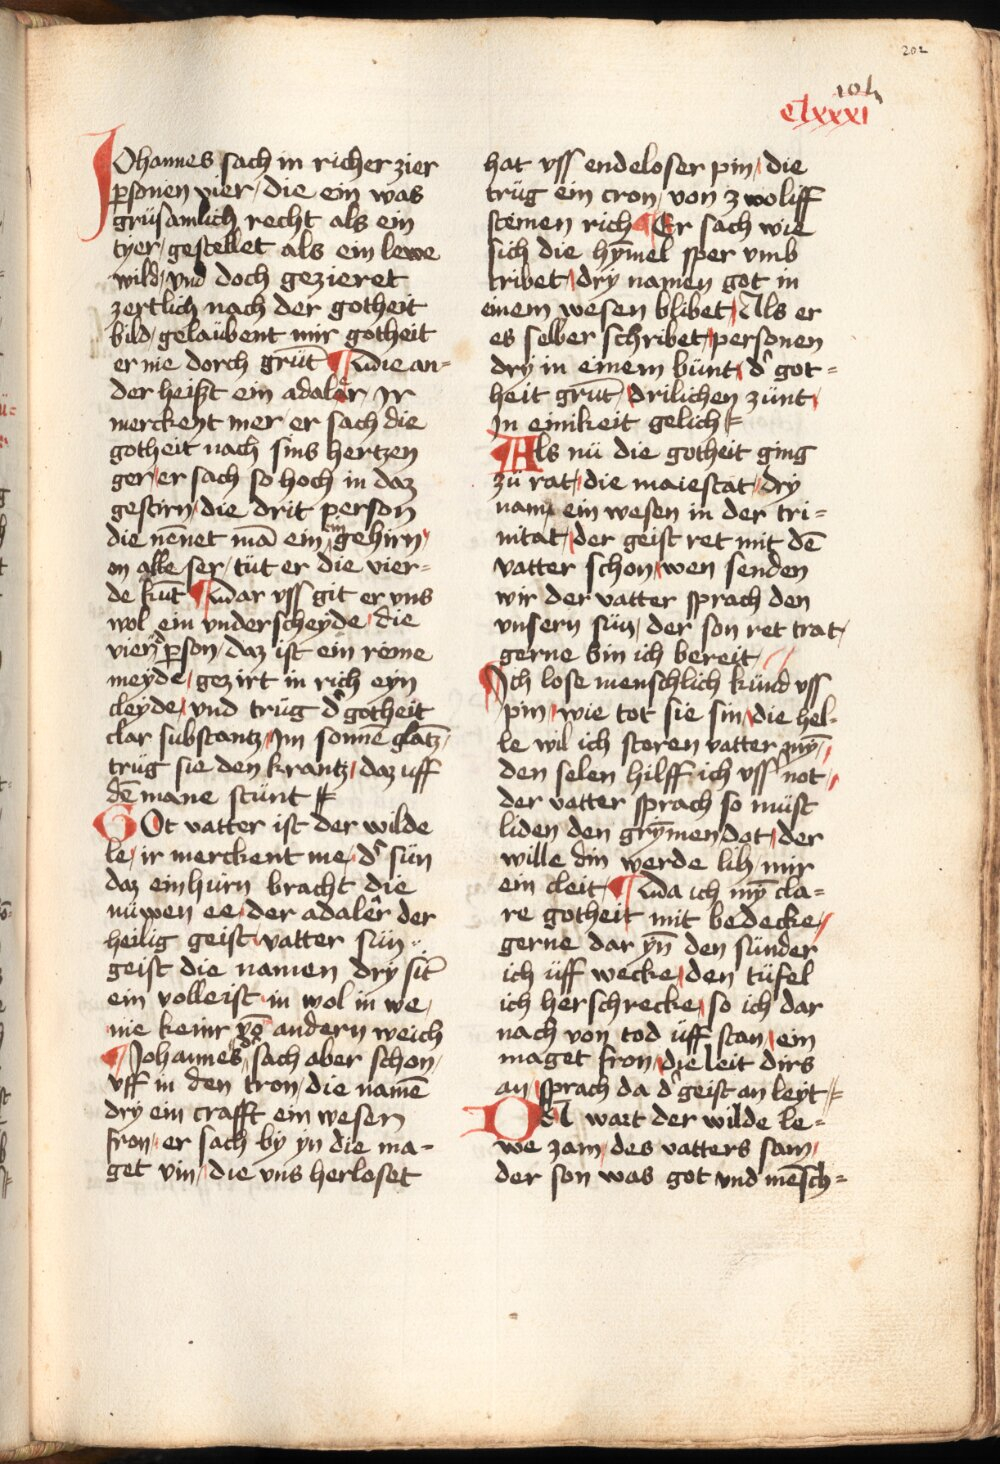 202
104
clxxxi
Johannes sach in richer zier
ꝑsonen vier / die ein was
grüsamlich recht als ein
tyer / gestellet als ein lewe
wild / vnd doch gezieret
zertlich nach der gotheit
bild / gelaübent mir gotheit
er nie dorch grüt̄ ¶ die an=
der heißt ein adalar Ir
merckent mer / er sach die
gotheit nach sins hertzen
ger / er sach so hoch in daz
gestirn / die drit person
die nēnet mā ein ein gehirn /
on alle ser / tüt er die vier=
de kūt ¶ dar vss git er vns
wol ein vnderscheyde / die
vierd ꝑson / daz ist ein reine
meyde / gezirt in rich eyn
cleyde / vnd trüg dˀ gotheit
clar substantz / Im sonne glātz /
trüg sie den krantz / daz uff
dē mane stünt
GOt vatter ist der wilde
le / ir merckent me / dˀ sün
daz einhürn bracht die
nüwen ee / der adaler der
heilig geist / vatter sün
geist die namen dry sit
ein volleist / in wol in we /
nie keinr vō andern weich
¶ Johannes sach aber schon /
vff in den tron / die namē
dry ein crafft ein wesen
fron / er sach by yn die ma=
get vin / die vns herloset
hat vss endeloser pin / die
trüg ein cron / von zwoliff
sternen rich ¶ Er sach wie
sich die hȳmel sper vmb
tribet / dry namen got in
einem wesen blibet / Als er
es selber schribet / personen
dry in einem bünt / dˀ got=
heit grūt / drilichen zünt /
In einikeit gelich
Als nü die gotheit ging
zü rat / die maiestat / dry
nam / ein wesen in der tri=
nitat / der geist ret mit dē
vatter schon / wen senden
wir der vatter sprach den
vnsern sün / der son ret trat /
gerne bin ich bereit /
Ich lose menschlich künd vss
pin / wie tot sie sin / die hel=
le wil ich storen vatter mȳ /
den selen hilff ich vss not /
der vatter sprach so müst
liden den grȳmen dot / der
wille din werde lih / mir
ein cleit ¶ da ich mȳ cla=
re gotheit mit bedecke /
gerne dar ȳn den sünder
ich üff wecke / den tüfel
ich herschrecke / so ich dar
nach von tod üff stan / ein
maget fron / die leit dirs
an / sprach da dˀ geist an leyt
DA wart der wilde le=
we zam / des vatters sam /
der son was got vnd mēsch=